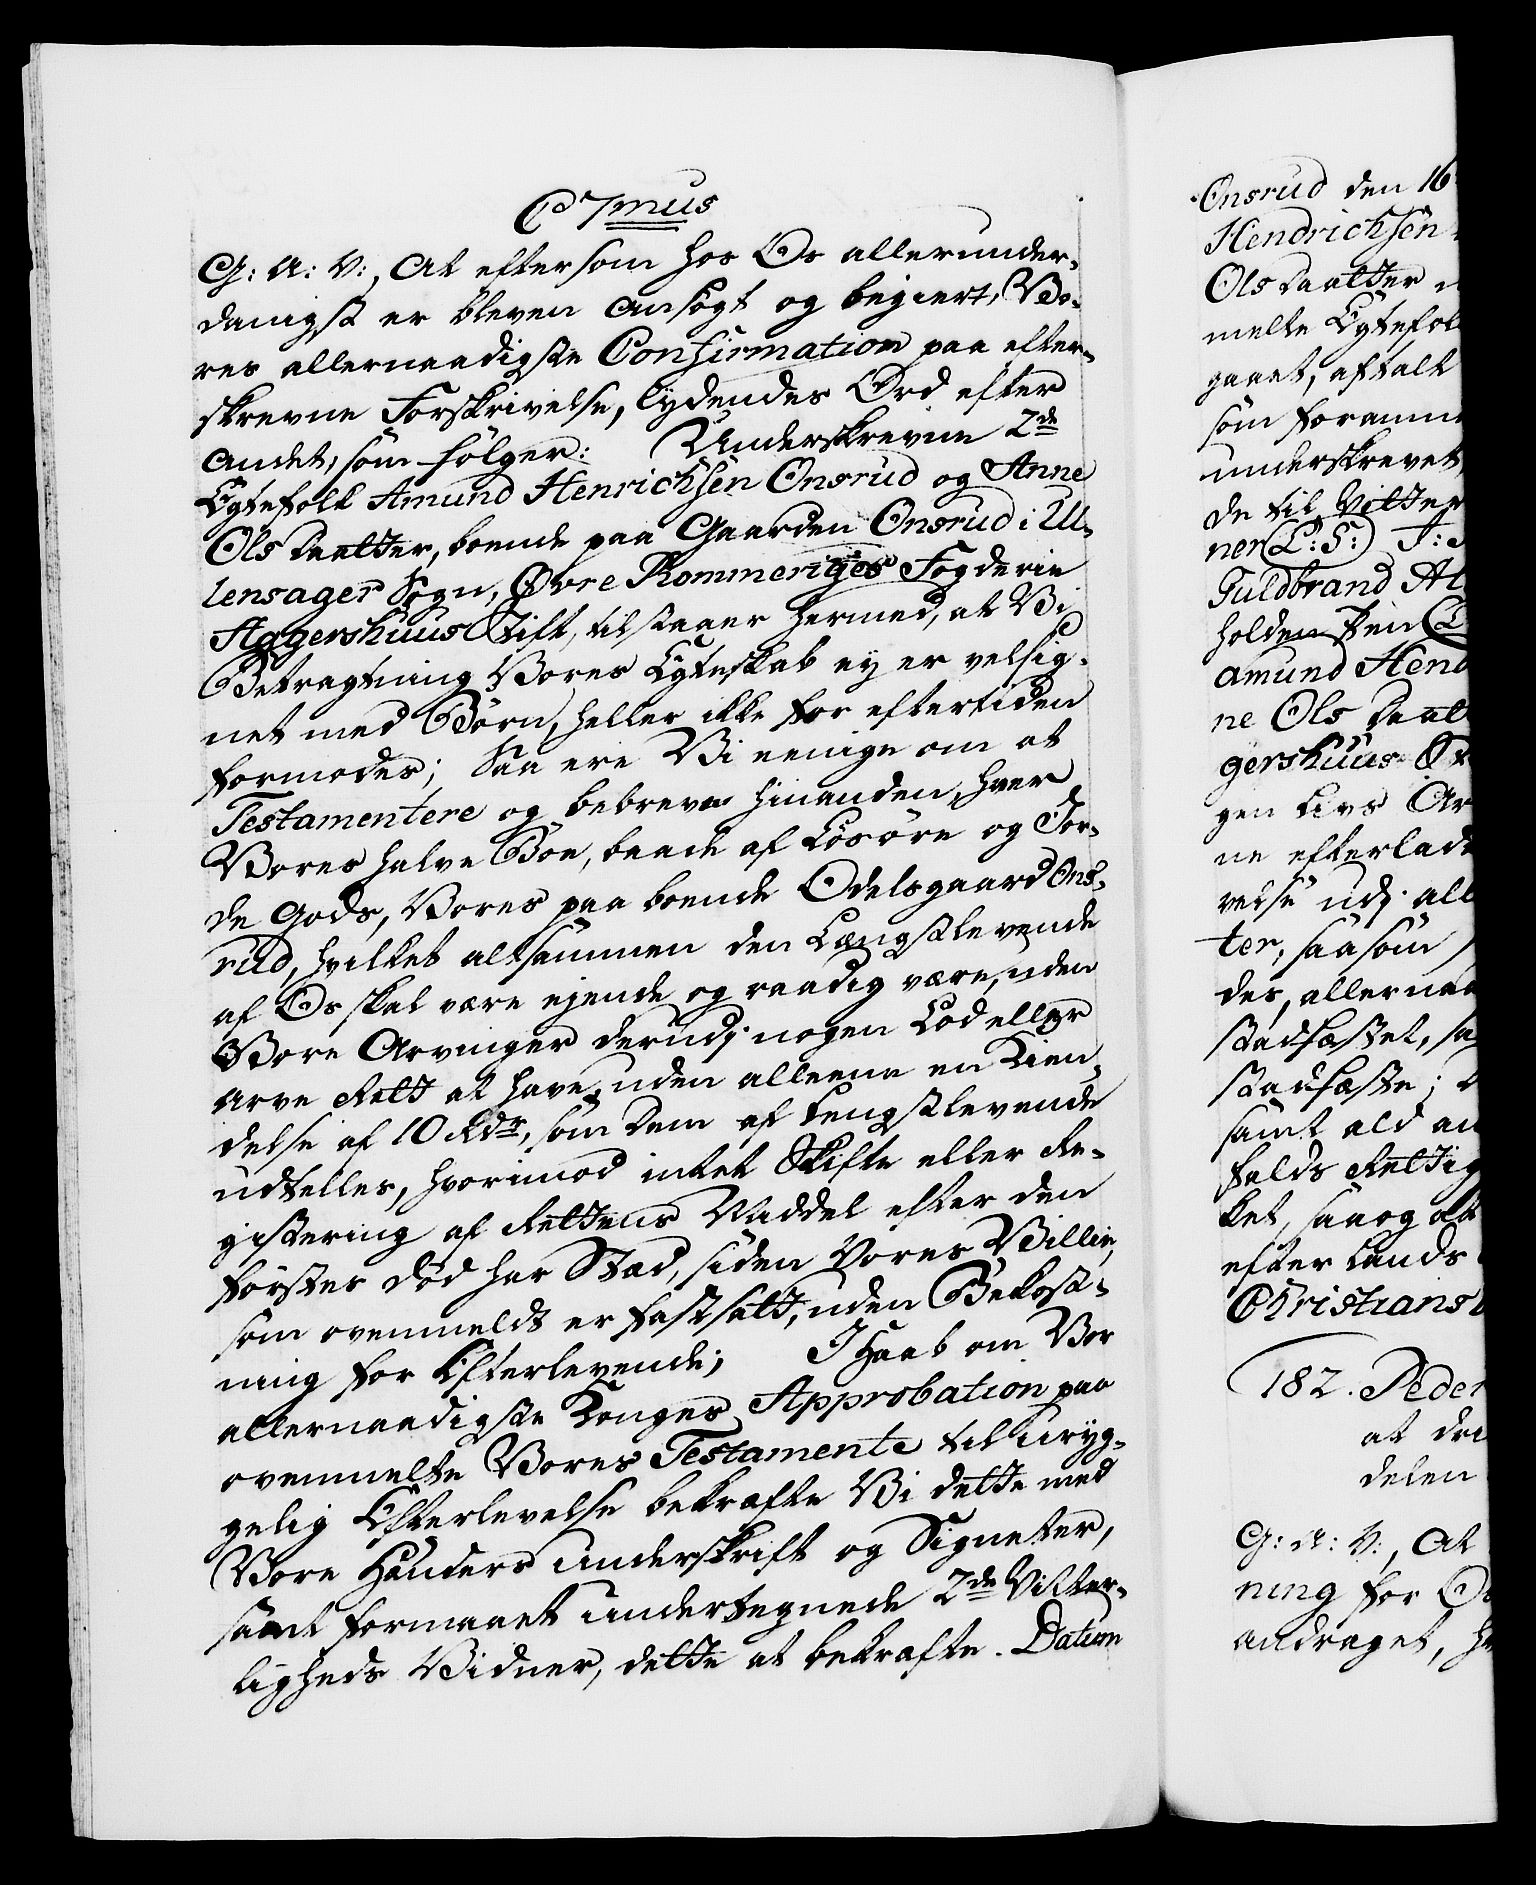 C 7mus
G: A: V:, At eftersom hos Os allerunder-
danigst er bleven ansøgt og begiert, Vo-
res allernaadigste Confirmation paa efter-
skrevne Forskrivelse, lydendes Ord efter
andet, som følger: Underskrevne 2de
Egtefolk Amund Henrichsen Onsrud og Anne
Ols Daatter, boende paa Gaarden Onsrud i Ul-
lensager Sogn, Øvre Rommeriges Fogderie
Aggershuus Stift, tilstaaer hermed, at Vi
Betragtning Vores Egteskab ey er velsig-
net med Børn, heller ikke for eftertiden
formodes; Saa ere Vi eenige om at
Testamentere og bebreve hinanden hver
Vores halve Boe, baade af Løsøre og Jor-
de Gods, Vores paa boende Odelsgaard Ons-
rud, hvilket altsammen den Længstlevende
af Os skal være ejende og raadig være, uden
Vore Arvinger derudj nogen Lod eller
Arve Rett at have, uden alleene en Kien-
delse af 10 Rdr, som Dem af Lengstlevende
udtelles, hvorimod intet Skifte eller Re-
gistering af Rettens Middel efter den
førstes død har Stæd, siden Vores Villie,
som ovenmeldt er fastsatt, uden Bekost-
ning for Efterlevende; I Haab om Vor
allernaadigste Konges Approbation paa
ovenmelte Vores Testamente til uryg-
gelig Efterlevelse bekræfte Vi dette med
Vore Hænders underskrift og Signeter,
samt formaaet undertegnede 2de Vitter-
ligheds Vidner, dette at bekræfte. Datum
Onsrud den 16
Hendrichsen
Ols Daatter
melte Egtefol
gaaet, aftalt
som foranm
underskrevet,
de til Vitter
ner (L:S:)
Guldbrand
holden Pen
Amund Hen
ne Ols Daat
gershuus
gen Livs Ar
ne efterlad
velse udj all
ter, saasom
des, allernaa
stadfæstet, sa
stadfæste;
samt ald an
falds Rettig
ket, saa og at
efter Lands
Christiansb
182. Peder
at
delen
G: A: V:, At
ning for O
andraget, h